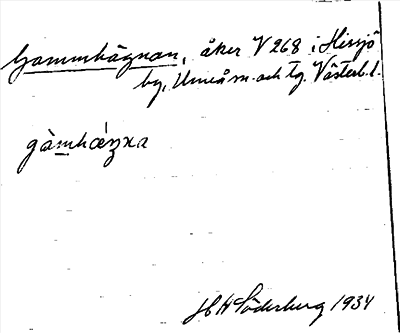 Gammhägnan, åker V 268 i Hissjö
by, Umeå sn. och tg. Västerb. l.
gàmhæ̀ŋna
H Söderberg 1934